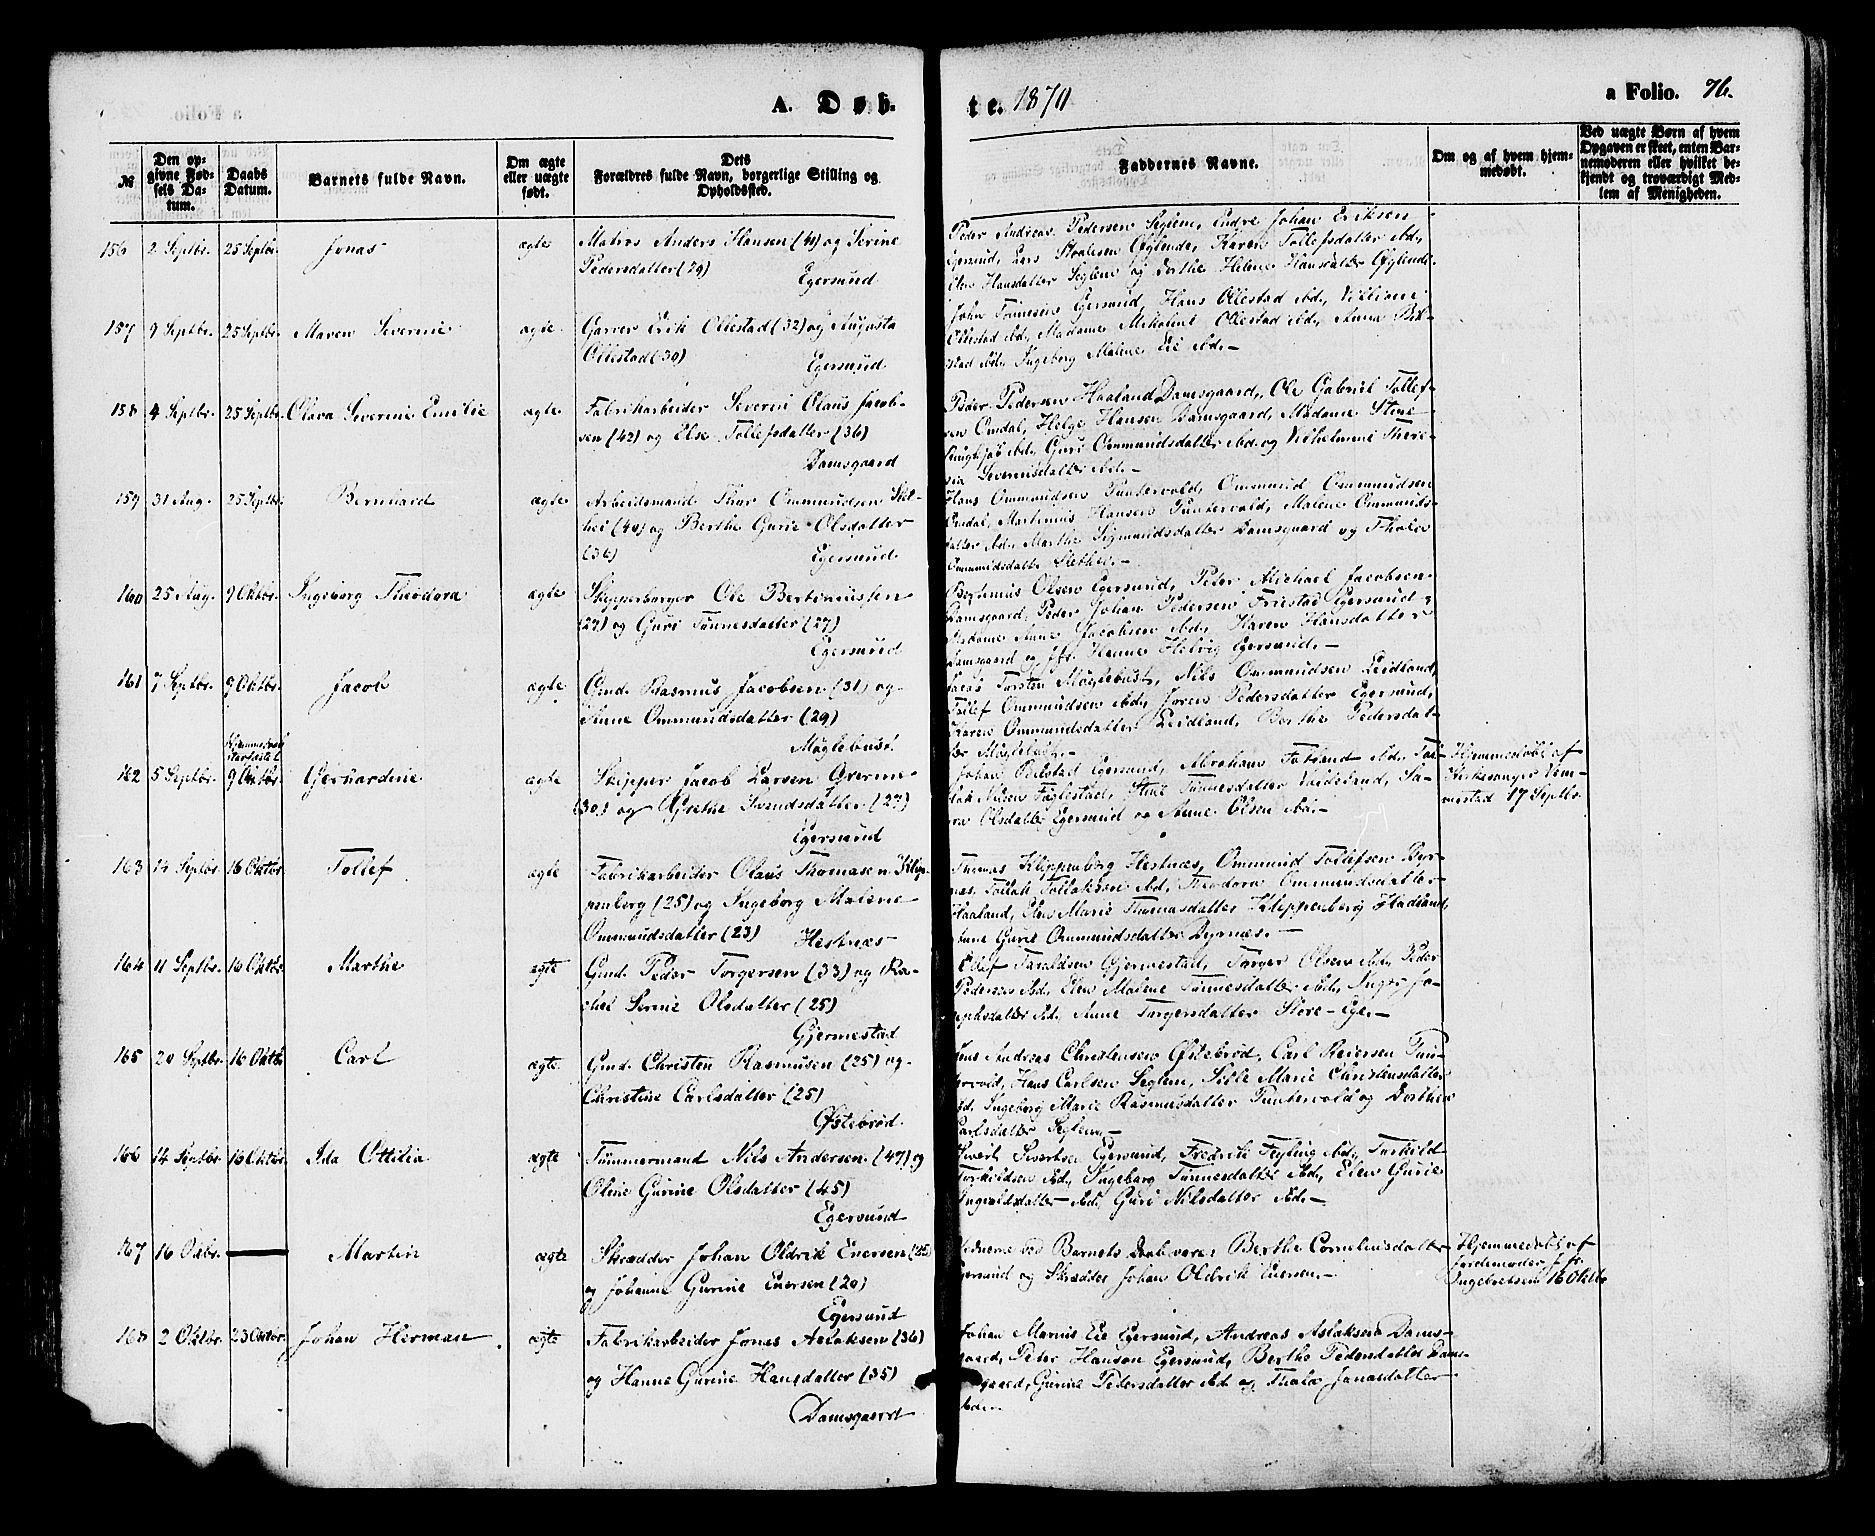 A. Døb-
te. 1870
a Folio. 76.
№
Den opgivne Fødsels Datum.
Daabs Datum.
Barnets fulde Navn.
Om ægte eller uægte født.
Dets Forældres fulde Navn, borgerlige Stilling og Opholdssted.
Faddernes Navne.
Om og af hvem hjemmedøbt.
Ved uægte Børn af hvem Opgaven er skeet, enten Barnemoderen eller hvilket bekjendt og troværdigt Medlem af Menigheden.
156 2 Septbr. 25 Septbr. Jonas ægte
Matros Anders Hansen (40) og Serine
Pedersdatter (29)
Egersund
Peder Andreas Pedersen Seglem, Endre Johan Eriksen
Egersund, Lars Øglende, Karen Tollefsdatter ibd.,
Elen Hansdatter Seglem og Berthe Helene Hansdatter Øglende
157 9 Septbr. 25 Septbr. Maren Severine ægte
Garver Erik Ollestad (32) og Augusta
Ollestad (30)
Egersund
John Egersund, Hans Ollestad ibd.,
Ollestad ibd., Madame Mikaline Ollestad ibd., Anna
ibd., Ingeborg Malene Eie ibd.-
158 4 Septbr. 25 Septbr. Olava Severine Emilie ægte
Fabrikarbeider Severin Olaus Jacob-
sen (42) og Else Tollefsdatter (36)
Damsgaard
Peder Pedersen Haaland Damsgaard, Ole Gabriel Tollef-
sen Omdal, Helge Hansen Damsgaard, Madame Stine
ibd., Guri Ommundsdatter ibd. og Vilhelmine There-
sia Severinsdatter ibd.-
159 31 Aug. 25 Septbr. Bernhard ægte
Arbeidsmand Thor Ommundsen Slet-
hei (40) og Berthe Gurie Olsdatter
(36)
Egersund
Hans Ommundsen Puntervold, Ommund Ommundsen
Omdal, Martinius Hansen Puntervold, Malene Ommunds-
datter ibd., Marthe Sigmundsdatter Damsgaard og Thale
Ommundsdatter Slethei.-
160 25 Aug. 9 Oktbr. Ingeborg Theodora ægte
Skipperborger Ole Bertinussen
(27) og Guri Tønnesdatter (27)
Egersund
Olsen Egersund, Peter Michael Jacobsen
Damsgaard, Peder Johan Pedersen Friestad Egersund,
Madame Anne Jacobsen ibd., Karen Hansdatter
Damsgaard og jfr. Hanne Helvig Egersund.-
161 7 Septbr. 9 Oktbr. Jacob ægte
Gmd. Rasmus Jacobsen (31) og
Anne Ommundsdatter (29)
Møglebust.
Jacob Torsten Møglebust, Nils Ommundsen Leidland,
Tollef Ommundsen ibd., Joren Pedersdatter Egersund,
Karen Ommundsdatter Leidland, Berthe Pedersdat-
ter Møglebust.-
162 5 Septbr. Hjemmedaab stadfæstet 9 Oktbr. Gerhardine ægte
Skipper Jacob Larsen
(30) og Grethe Svendsdatter (27)
Egersund
Johan Egersund, Abraham Fotland ibd.,
Nilsen Fuglestad, Stine Tønnesdatter, Sa-
ra Olsdatter Egersund og Anne Olsen ibd.-
Hjemmedøbt af
Kirkesanger Vem-
mestad 17 Septbr.
163 14 Septbr. 16 Oktbr. Tollef ægte
Fabrikarbeider Olaus Thomasen Klip-
penberg (25) og Ingeborg Malene
Ommundsdatter (23)
Hestnæs
Thomas Klippenberg Hestnæs, Ommund Tollefsen Dyr-
næs, Tollak Tollaksen ibd., Theodora Ommundsdatter
Haaland, Elen Marie Thomasdatter Klippenberg Hadland,
Gurie Ommundsdatter Dyrnæs.-
164 11 Septbr. 16 Oktbr. Marthe ægte
Gmd. Peder Torgersen (33) og Ra-
chel Serine Olsdatter (25)
Gjermestad
Taraldsen Gjermestad, Torger Olsen ibd., Peder
Pedersen ibd., Elen Malene Tønnesdatter ibd., Inger Jo-
sephsdatter ibd., Anne Torgersdatter Store-Ege.-
165 20 Septbr. 16 Oktbr. Carl ægte.
Gmd. Christen Rasmusen (25) og
Christine Carlsdatter (25)
Østebrød.
Jens Andreas Christensen Østebrød, Carl Reiersen Pun-
tervold, Hans Carlsen Seglem, Sille Marie Christensdatter
ibd., Ingeborg Marie Rasmusdatter Puntervold og Dorthea
Carlsdatter Seglem.-
166 14 Septbr. 16 Oktbr. Ida Ottilia ægte
Tømmermand Nils Andersen (47) og
Oline Gurine Olsdatter (45)
Egersund
Sivert Sivertsen Egersund, Fredrik Feyling ibd., Torkild
Torkildsen ibd., Ingeborg Tønnesdatter ibd., Elen Gurie
Ingvaldsdatter ibd., Guri Nilsdatter ibd.-
167 16 Oktbr. — Martin ægte
Skrædder Johan Oldrik Enersen (25)
og Johanne Gurine Enersen (20)
Egersund
Vidnerne ved Barnets Daab vare: Berthe Corneliusdatter
Egersund og Skrædder Johan Oldrik Enersen.-
Hjemmedøbt af
Jordemoder jfr.
Ingebretsen 16 Oktbr
168 2 Oktbr. 23 Oktbr. Johan Herman ægte
Fabrikarbeider Jonas Aslaksen (36)
og Hanne Gurine Hansdatter (35)
Damsgaard
Johan Marius Eie Egersund, Andreas Aslaksen Dams-
gaard, Peter Hansen Egersund, Berthe Pedersdatter Dams-
gaard, Gurine Pedersdatter ibd. og Thale Jonasdatter
ibd.-